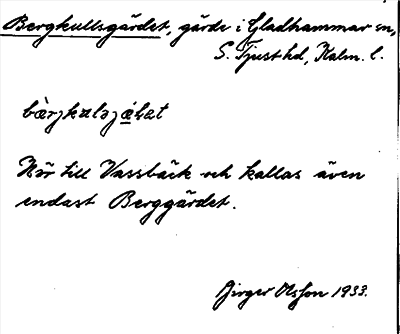 Bergkullsgärdet, gärde i Gladhammar sn,
S. Tjust hd, Kalm. l.
Hör till Vassbäck och kallas även
endast Berggärdet.
Birger Olsson 1933.